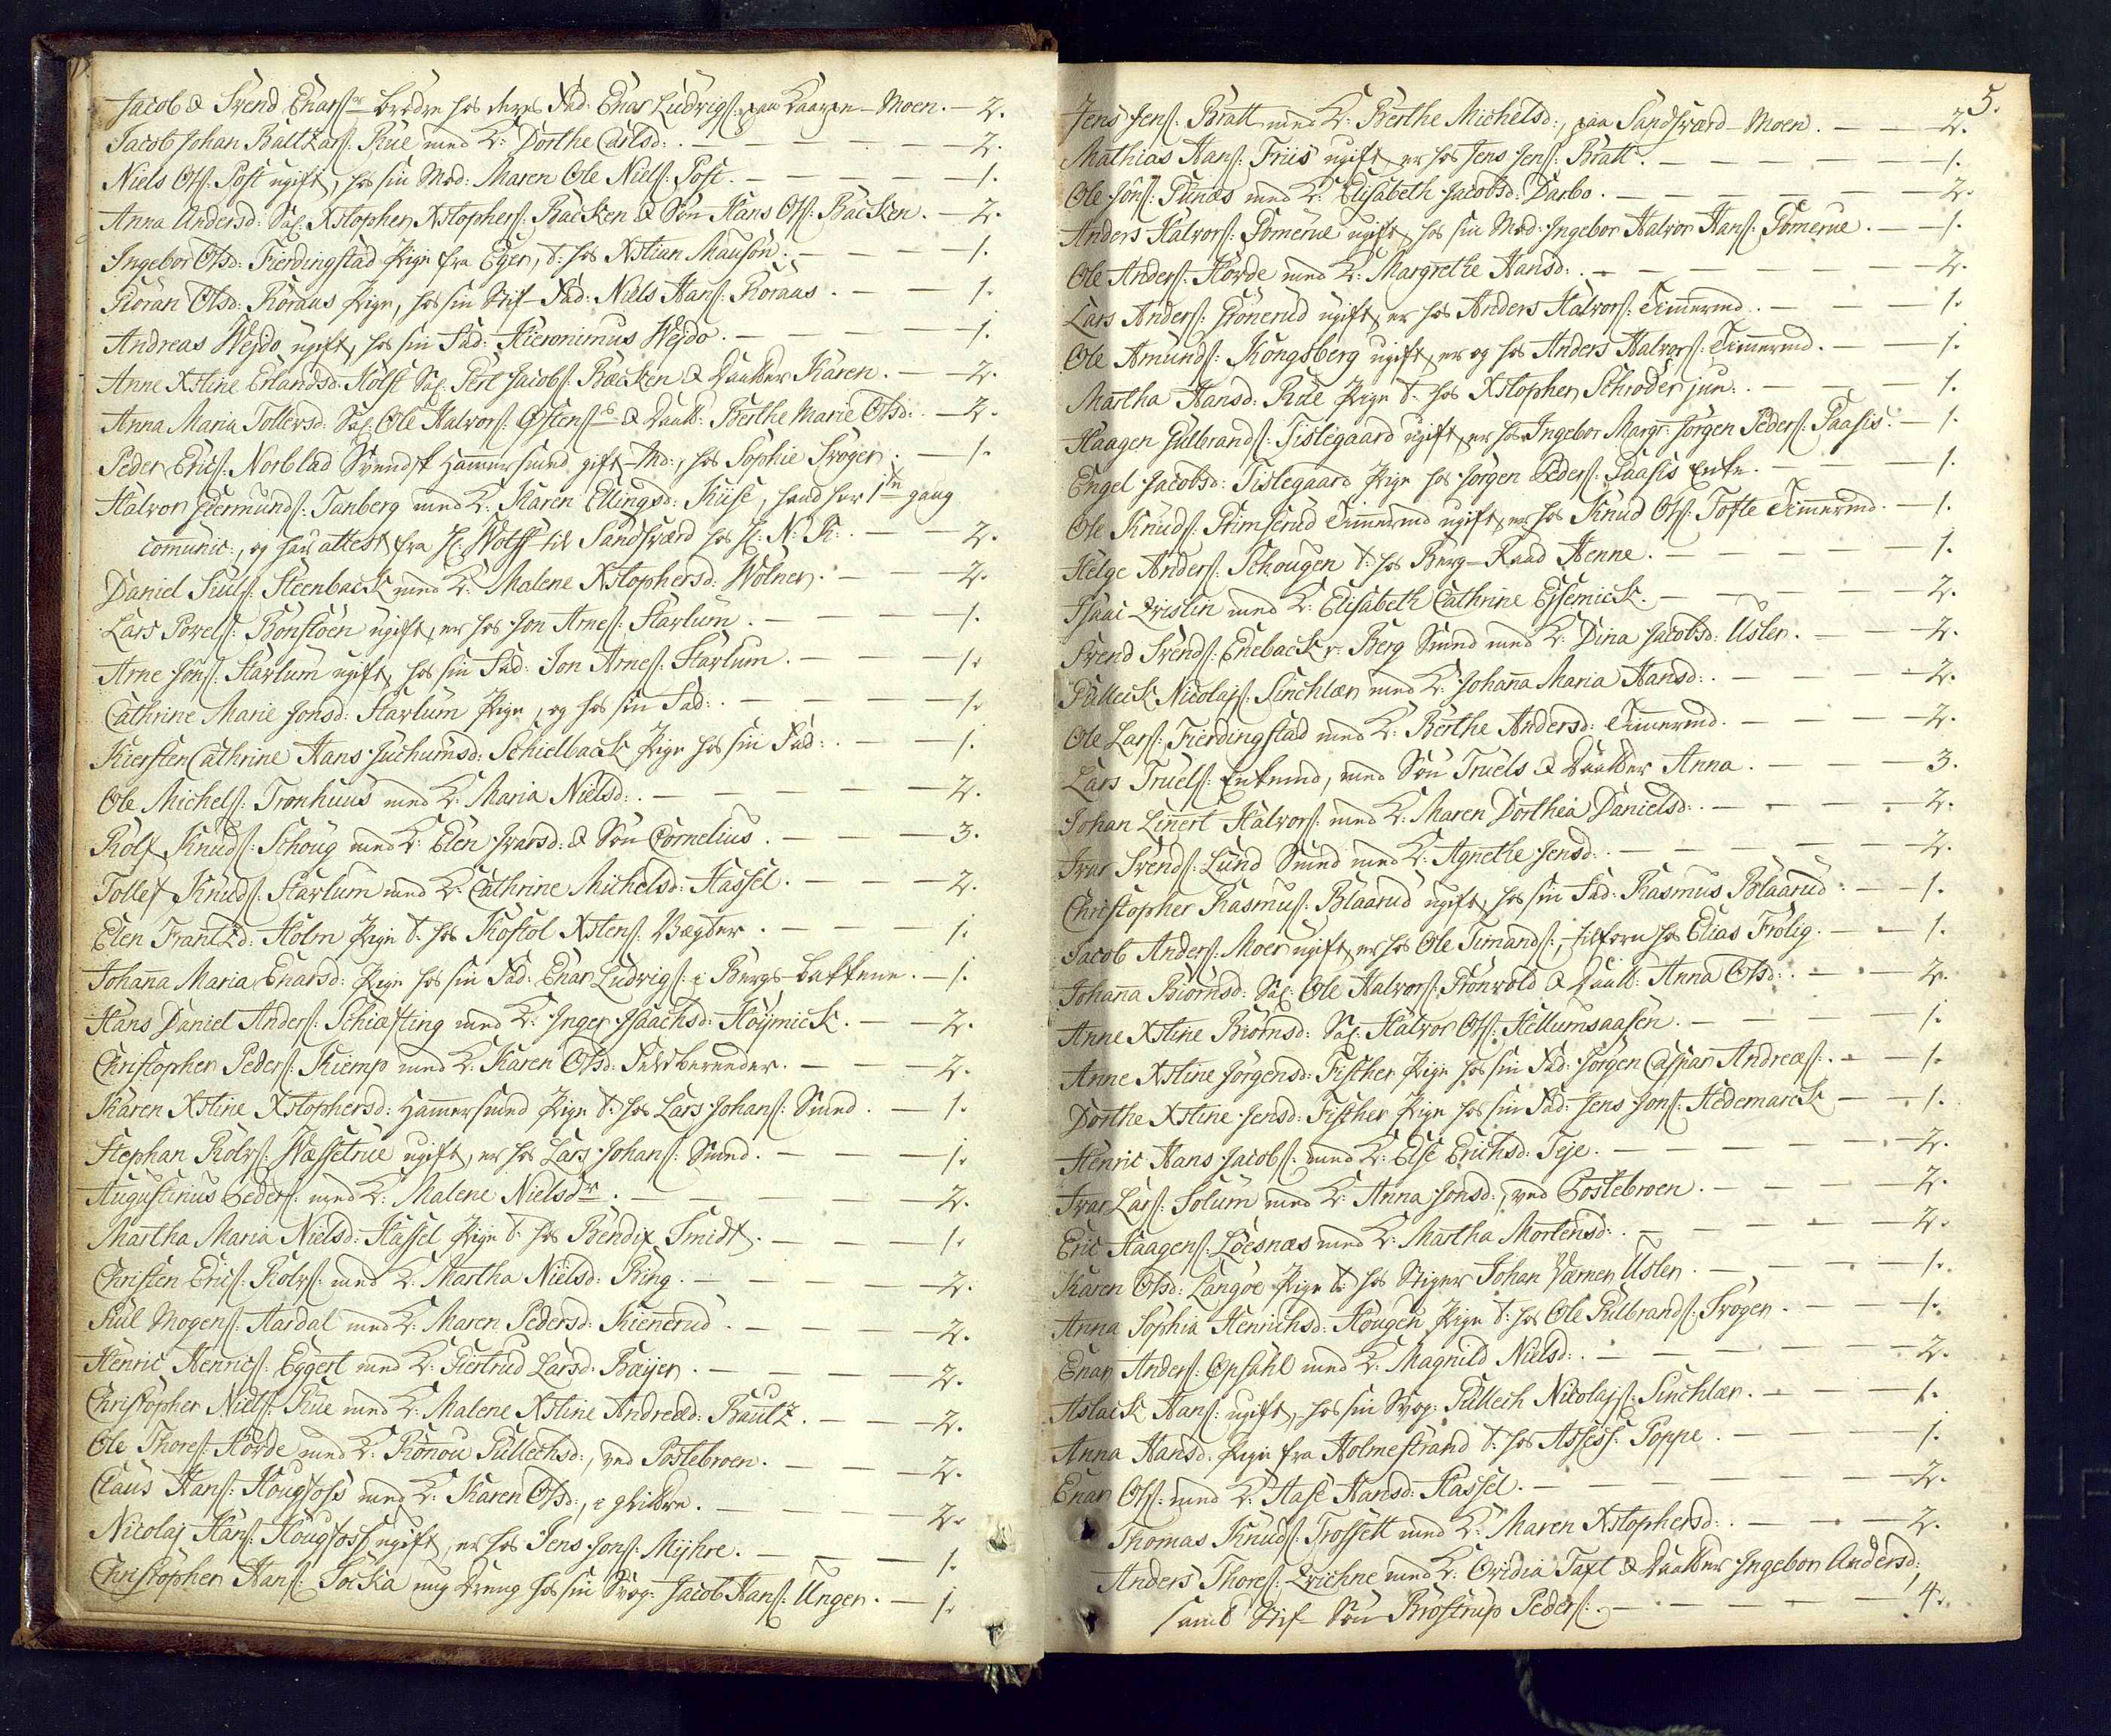 Jacob & Svend Enars:er brødre hos deres Fad: Enar Ludvigs: paa Haagen-Moen. — 2.
Jacob Johan Baltzars: Rue med K: Dorthe Carlsd: — 2.
Niels Ols: Post ugift, hos sin Mod: Maren Ole Niels: Post. — 1.
Anna Andersd: Sal: Xstopher Xstophers: Backen & Søn Hans Ols: Backen. — 2.
Ingebor Olsd: Fierdingstad Pige fra Eger, t: hos Xstian Mauson. — 1.
Giøran Olsd: Koraas Pige, hos sin Stif-Fad: Niels Hans: Koraas. — 1.
Andreas Wejdo ugift, hos sin Fad: Hieronimus Wejdo. — 1.
Anne Xstine Erlandsd: Holst Sal: Perl Jacobs: Bæcken & Daatter Karen. — 2.
Anna Maria Tollersd: Sal: Ole Halvors: Østens: & Daatt: Berthe Marie Olsd: — 2.
Peder Erics: Norblad Svendsk Hammersmed gift-Md:, hos Sophie Skogen. — 1.
Halvor Germunds: Tanberg med K: Karen Ellingsd: Kiise, hand her 1te gang
communic:, og har attest fra H: Wolff til Sandsværd hos H: N: K: — 2.
Daniel Siuls: Steenback med K: Malene Xstophersd: Wølner. — 2.
Lars Povels: Bonstoen ugift, er hos Jon Arnes: Skarlum. — 1.
Arne Jons: Skarlum ugift, hos sin Fad: Jon Arnes: Skarlum. — 1.
Cathrine Marie Jonsd: Skarlum Pige, og hos sin Fad: — 1.
Kiersten Cathrine Hans Juchumsd: Schielback Pige hos sin Fad: — 1.
Ole Michels: Tronhuus med K: Maria Nielsd: — 2.
Rolf Knuds: Schoug med K: Elen Ivarsd: & Søn Cornelius. — 3.
Tollef Knuds: Skarlum med K: Cathrine Michelsd: Hassel. — 2.
Elen Frantzd: Holm Pige t: hos Kostol Xstens: Vægter. — 1.
Johanna Maria Enarsd: Pige hos sin Fad: Enar Ludvigs: i Bergs-bakkene. — 1.
Hans Daniel Anders: Schiefting med K: Inger Isaachsd: Høymick. — 2.
Christopher Peders: Kiemp med K: Karen Olsd: Selvberender. — 2.
Karen Xstine Xstophersd: Hammersmed Pige t: hos Lars Johans: Smed. — 1.
Stephan Rolvs: Wæssetrue ugift, er hos Lars Johans: Smed. — 1.
Augustinus Peders: med K: Malene Nielsdr. — 2.
Martha Maria Nielsd: Hassel Pige t: hos Bendix Smidt. — 1.
Christen Erics: Rolvs: med K: Martha Nielsd: Ring. — 2.
Siul Mogens: Aardal med K: Maren Pedersd: Kienerud. — 2.
Henric Henrics: Eggert med K: Giertrud Larsd: Bæijer. — 2.
Christopher Niels: Rue med K: Malene Xstine Andreæd: Bautz. — 2.
Ole Thores: Hørde med K: Rønou Gullechsd:, ved Postebroen. — 2.
Claus Hans: Hougfoss med K: Karen Olsd:, i glitre. — 2.
Nicolaj Hans: Hougfoss ugift, er hos Jens Jons: Mijhre. — 1.
Christopher Hans: Socka ung dreng hos sin Svog: Jacob Hans: Unger. — 1.
5.
Jens Jens: Bratt med K: Berthe Michelsd:, paa Sandsværd-Moen. — 2.
Mathias Hans: Friis ugift, er hos Jens Jens: Bratt. — 1.
Ole Jons: Gunæs med K: Elisabeth Jacobsd: Darbo. — 2.
Anders Halvors: Gomerue ugift, hos sin Mod: Ingebor Halvor Hans: Gomerue. — 1.
Ole Anders: Hørde med K: Margrethe Hansd: — 2.
Lars Anders: Grønerud ugift, er hos Anders Halvors: Timmermd. — 1.
Ole Amunds: Kongsberg ugift, er og hos Anders Halvors: Timmermd. — 1.
Martha Hansd: Rue Pige t: hos Xstopher Schroder jun: — 1.
Haagen Gulbrands: Tislegaard ugift, er hos Ingebor Margr: Jørgen Peders: Paasis: — 1.
Engel Jacobsd: Tislegaard Pige hos Jørgen Peders: Paasis Enke. — 1.
Ole Knuds: Stimserud Timmermd ugift, er hos Knud Ols: Tofte Timmermd. — 1.
Helge Anders: Schougen t: hos Berg-Raad Henne. — 1.
Isaac Qvislin med K: Elisabeth Cathrine Eisemick. — 2.
Svend Svends: Enebæck v: Berg Smed med K: Dina Jacobsd: Usler. — 2.
Gulleck Nicolajs: Sinchlær med K: Johanna Maria Hansd: — 2.
Ole Lars: Fierdingstad med K: Berthe Andersd: Timmermd. — 2.
Lars Truels: Enkemd, med Søn Truels & Daatter Anna. — 3.
Johan Linert Halvors: med K: Maren Dorthea Danielsd: — 2.
Ivar Svends: Lund Smed med K: Agnethe Jensd: — 2.
Christopher Rasmus: Blaarud ugift, hos sin Fad: Rasmus Blaarud. — 1.
Jacob Anders: Moer ugift, er hos Ole Timands:, tilforn hos Elias Frølig. — 1.
Johanna Biørnsd: Sal: Ole Halvors: Grønvold & Daatt: Anna Olsd: — 2.
Anne Xstine Biørnsd: Sal: Halvor Ols: Hellumsaasen. — 1.
Anne Xstine Jørgensd: Fischer Pige hos sin Fad: Jørgen Caspar Andreæs: — 1.
Dorthe Xstine Jensd: Fischer Pige hos sin Fad: Jens Jons: Hedemarck — 1.
Henric Hans Jacobs: med K: Else Erichsd: Teje. — 2.
Ivar Lars: Solum med K: Anna Jonsd:, ved Postebroen. — 2.
Eric Haagens: Løesnæs med K: Martha Mortensd: — 2.
Karen Olsd: Langøe Pige t: hos Stiger Johan Værner Usler. — 1.
Anna Sophia Henrichsd: Hougen Pige t: hos Ole Gulbrands: Skogen. — 1.
Enar Anders: Opsahl med K: Magnild Nielsd: — 2.
Aslack Hans: ugift, hos sin Svog: Gullech Nicolajs: Sinchlær. — 1.
Anna Hansd: Pige fra Holmestrand t: hos Assess: Poppe. — 1.
Enar Ols: med K: Aase Hansd: Hassel. — 2.
Thomas Knuds: Trossett med K: Maren Xstophersd: — 2.
Anders Thores: Qvichne med K: Ovidia Taft & Daatter Ingebor Andersd:,
samt Stif-Søn Brostrup Peders: — 4.